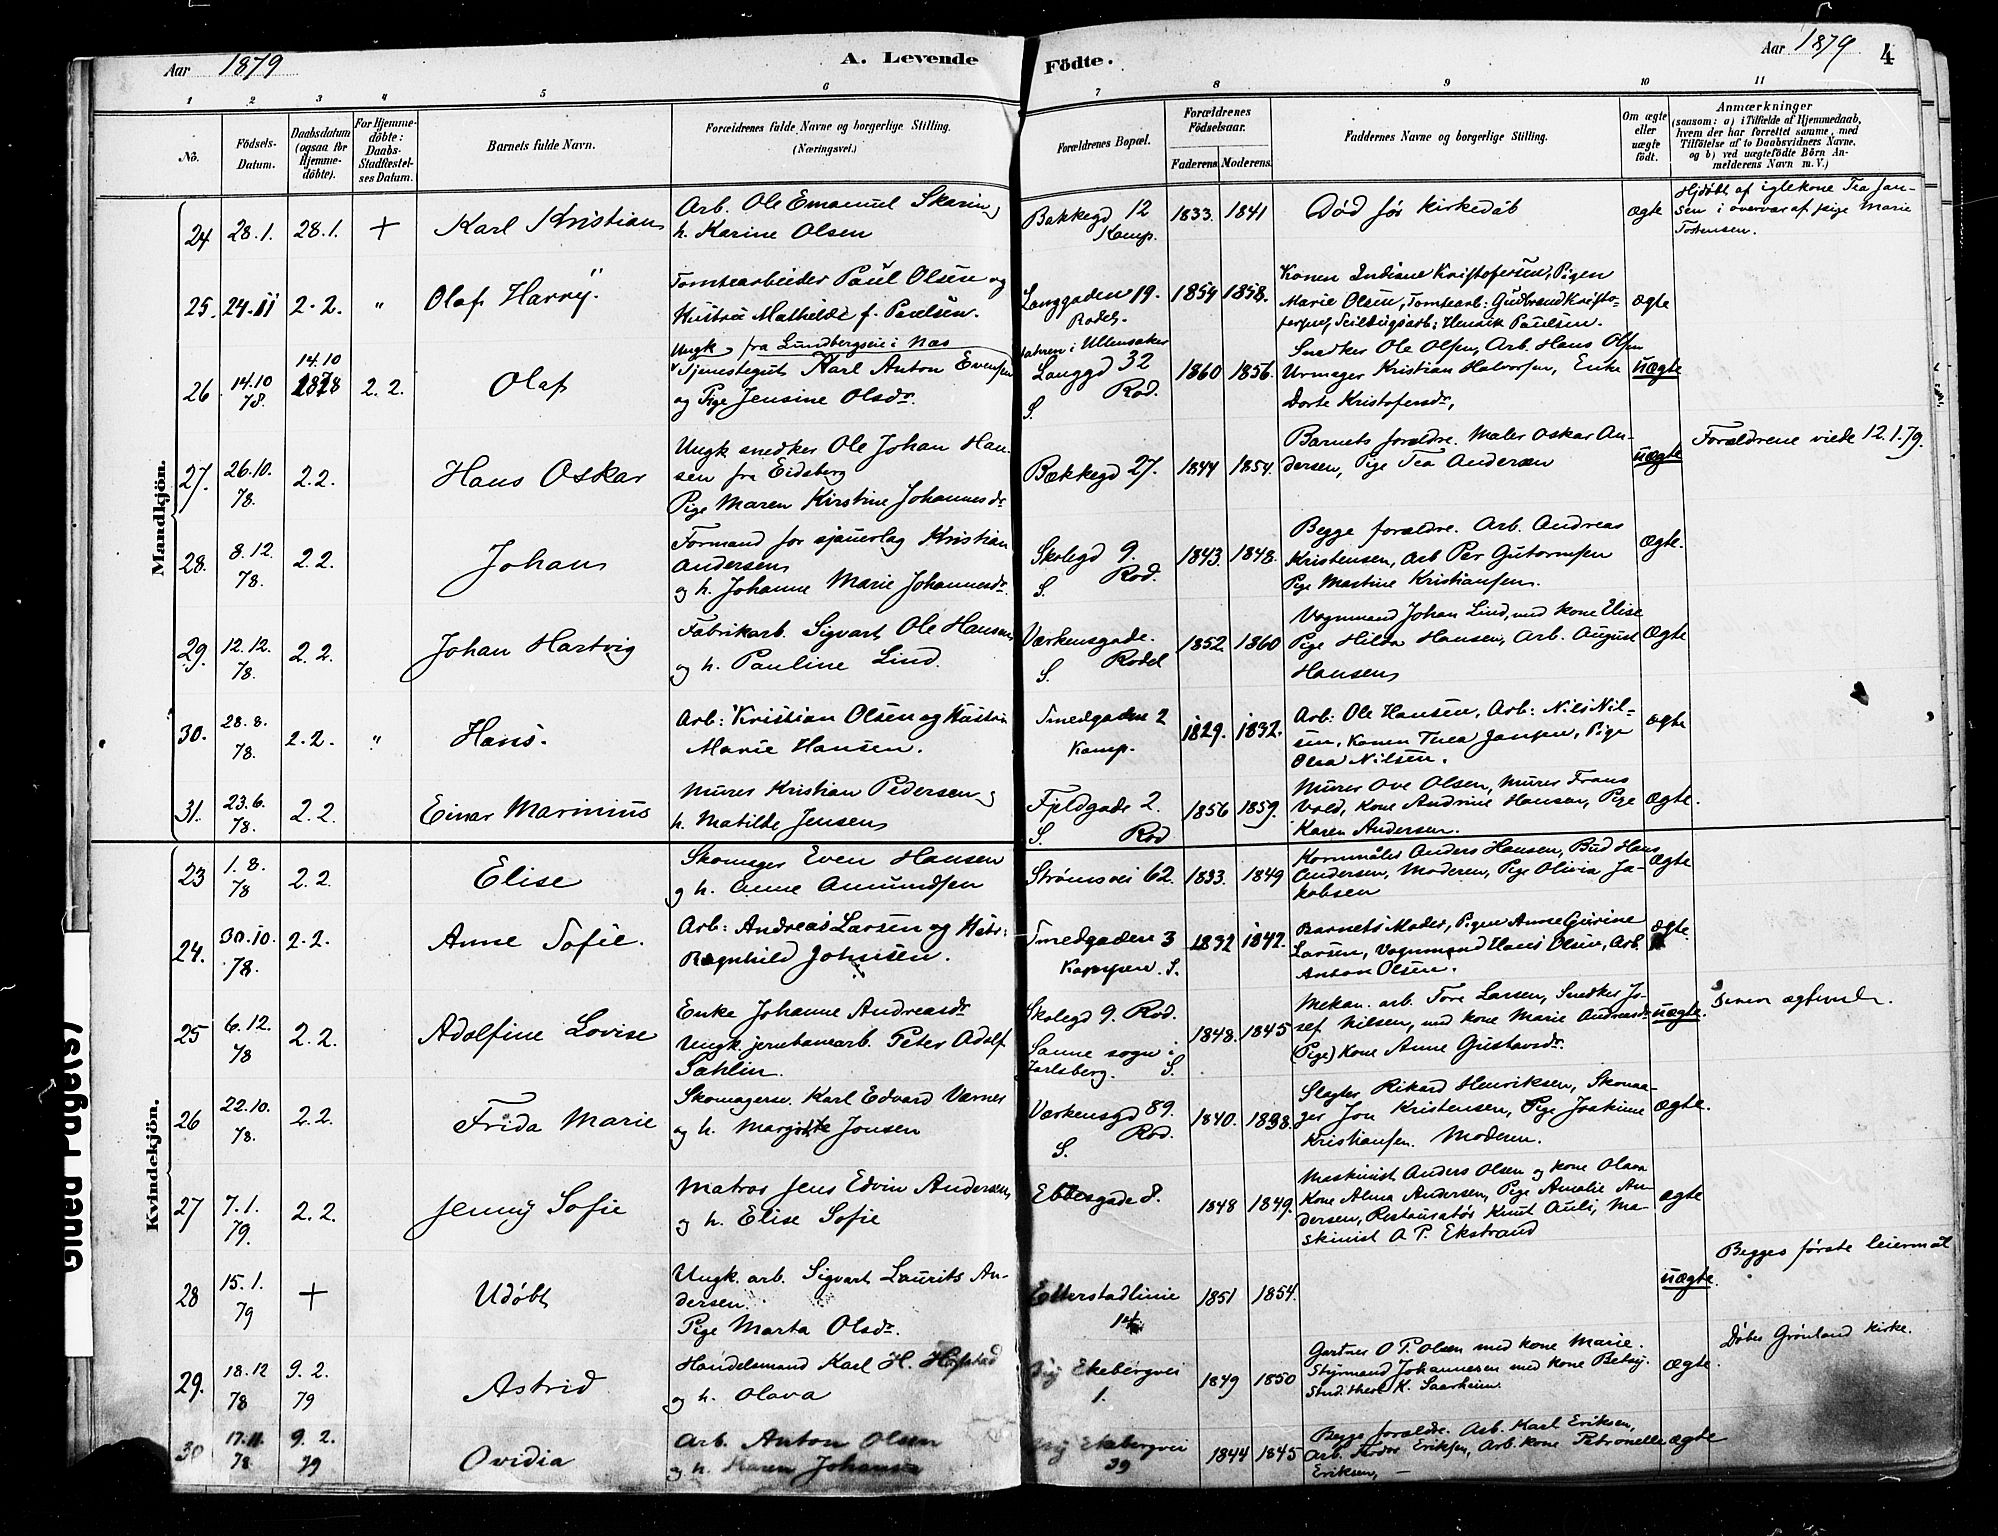 Aar 1879
A. Levende
Födte.
Aar 1879
4
1 2 3 4 5 6 7 8 9 10 11
No.
Födsels-Datum.
Daabsdatum (ogsaa for Hjemme-döbte).
For Hjemme-döbte: Daabs-Stadfæstel-ses Datum.
Barnets fulde Navn.
Forældrenes fulde Navne og borgerlige Stilling.
(Næringsvei.)
Forældrenes Bopæl.
Forældrenes Födselsaar.
Faderens. Moderens.
Faddernes Navne og borgerlige Stilling.
Om ægte eller uægte födt.
Anmærkninger
(saasom: a) i Tilfælde af Hjemmedaab,
hvem der har forrettet samme, med
Tilföielse af to Daabsvidners Navne,
og b) ved uægtefödte Börn An-
melderens Navn m. V.)
Mandkjön.
24 28.1. 28.1. + Karl Kristian
Arb. Ole Emanuel Skerin
h. Karine Olsen
Bakkegd 12
Kamp.
1833. 1841
Död før Kirkedåb
ægte
Hjdøbt af iglekone Tea Jan-
sen i overvær af pige Marie
Torstensen.
25. 24.11 2.2. " Olaf Harry.
Tomtearbeider Paul Olsen og
Hustru Mathilde f. Paulsen.
Langgaden 19.
Rodel.
1854 1858.
Konen Indiane Kristofersen, Pigen
Marie Olsen, Tomtearb: Gudbrand Kristo-
fersen, Seildugsarb: Henrik Paulsen.
ægte
26. 14.10 78. 14.10 1878 2.2. Olaf
Ungk fra Lundbergseie i Næs
Tjenestegut Karl Anton Evensen
og Pige Jensine Olsdr.
i Ullensaker
Langgd 32
Rod.
S.
1860 1856.
Snedker Ole Olsen, Arb. Hans Olsen
Urmager Kristian Halvorsen, Enke
Dorte Kristofersdr,
uægte
27. 26.10. 78. 2.2. Hans Oskar
Ungk snedker Ole Johan Han-
sen fra Eidsberg
Pige Maren Kirstine Johannesdr
Bækkegd 27.
1844 1854.
Barnets forældre. Maler Oskar An-
dersen, Pige Tea Andersen
uægte
Forældrene viede 12.1.79.
28. 8.12. 78. 2.2. Johan
Formand for sjauerlag Kristian
Andersen
og h. Johanne Marie Johannesdr.
Skolegd 9.
S. Rod.
1843. 1848.
Begge forældre. Arb. Andreas
Kristensen, Arb Per Gutormsen
Pige Martine Kristiansen.
ægte.
29. 12.12. 78. 2.2. Johan Hartvig
Fabrikarb. Sigvart Ole Hansen
og h. Pauline Lind.
Værkensgade.
S. Rodel
1852. 1860
Vognmand Johan Lind, med kone Elise
Pige Hilda Hansen, Arb. August
Hansen
Ægte
30. 28.8. 78. 2.2. " Hans.
Arb: Kristian Olsen og Hustru
Marie Hansen.
Smedgaden 2
Kamp.
1829. 1832.
Arb: Ole Hansen, Arb: Nils Nil-
sen, Konen Thea Jansen, Pige
Olea Nilsen.
ægte
31. 23.6. 78. 2.2. Einar Marinius
Murer Kristian Pedersen og
h. Matilde Jensen
Fjeldgade 2.
S. Rod
1856 1859.
Murer Ove Olsen, Murer Frans
Vold, Kone Andrine Hansen, Pige
Karen Andersen.
Ægte.
Kvindekjön.
23 1.8. 78 2.2. Elise
Skomager Even Hansen
og h. Anne Amundsen
Strømsvei 62.
1833. 1849
Kornmåler Anders Hansen, Bud Hans
Andersen, Moderen, Pige Olivia Ja-
kobsen
ægte
24. 30.10. 78. 2.2. Anne Sofie.
Arb: Andreas Larsen og Hustr:
Ragnhild Johnsen.
Smedgaden 3
Kampen. S.
1832 1842.
Barnets Moder, Pigen Anne Gurine
Larsen, Vognmand Hans Olsen, Arb.
Anton Olsen.
ægte.
25 6.12. 78 2.2. Adolfine Lovise
Enke Johanne Andreasdr
Ungk. jernbanearb. Peter Adolf
Sahlin.
Skolegd 9. Rod.
Sanne sogn i
Jarlsberg. S.
1848. 1845
Mekan. arb. Tore Larsen, Snedker Jo-
sef Nilsen, med kone Marie Andreasdr
(Pige) Kone Anne Gustavsdr.
uægte.
26 22.10. 78. 2.2. Frida Marie
Skomagersv. Karl Edvard Værner
og h. Margitte Jonsen
Værkensgd 89.
S. Rod.
1840. 1838.
Slagter Rikard Henriksen, Skoma-
ger Jon Kristensen, Pige Joakime
Kristiansen. Moderen.
Ægte.
27 7.1. 79. 2.2. Jenny Sofie
Matros Jens Edvin Andersen
og h. Elise Sofie
Ebbesgade 8.
1848 1849.
Maskinist Anders Olsen og kone Olava
Kone Alma Andersen, Pige Amalie An-
dersen, Restauratør Knut Auli, Ma-
skinist A P. Ekstrand
ægte
28 15.1. 79 + Udøbt
Ungk. arb. Sigvart Laurits An-
dersen.
Pige Marta Olsdr.
Etterstadlinie
14
1851 1854.
uægte.
Begges første leiermål
29. 18.12 78 9.2. 79 Astrid
Handelsmand Karl H. Hofstad
og h. Olava
Ny Ekebergvei
1.
1849 1850
Gartner O P. Olsen med kone Marie.
Styrmand Johannesen med kone Betsy.
Stud. theol K. Saarheim.
ægte
Døbt Grønland Kirke.
30 17.11. 78 9.2. 79 Ovidia
Arb. Anton Olsen
og h. Karen Johansen
Ny Ekebergvei
39
1844 1845
Begge forældre. Arb. Karl Eriksen,
Arb. Eriksen, Arb. kone Petronelle
Eriksen, —
ægte
Glued Page(s)